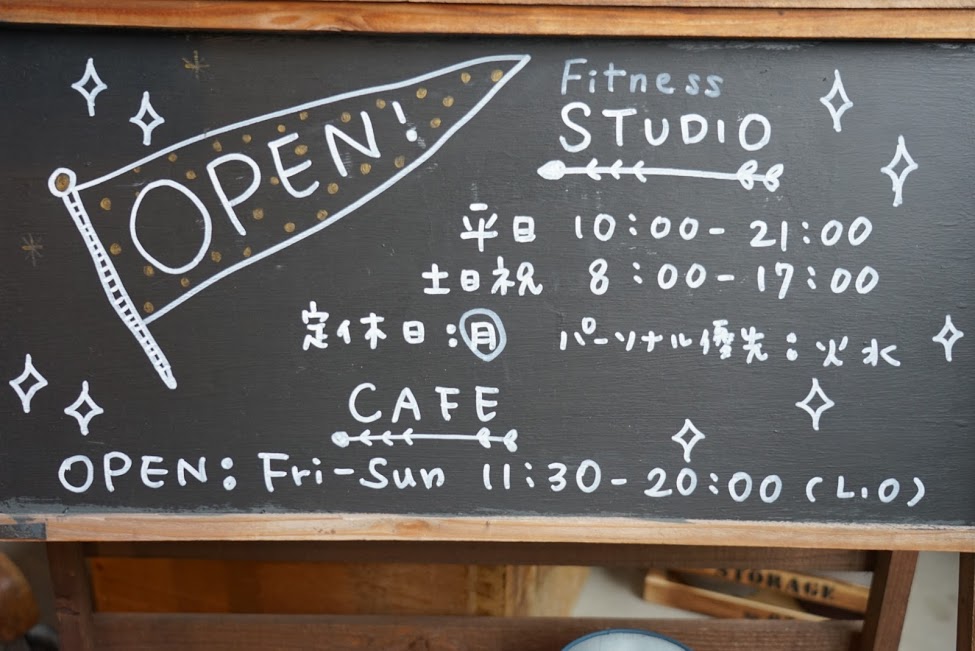 OPEN!
Fitness
STUDIO
平日 10:00- 21:00
土日祝 8:00-17:00
定休日:月 パーソナル優先:火水
CAFE
OPEN: Fri-Sun 11:30-20:00 (L.O)
STORAGE